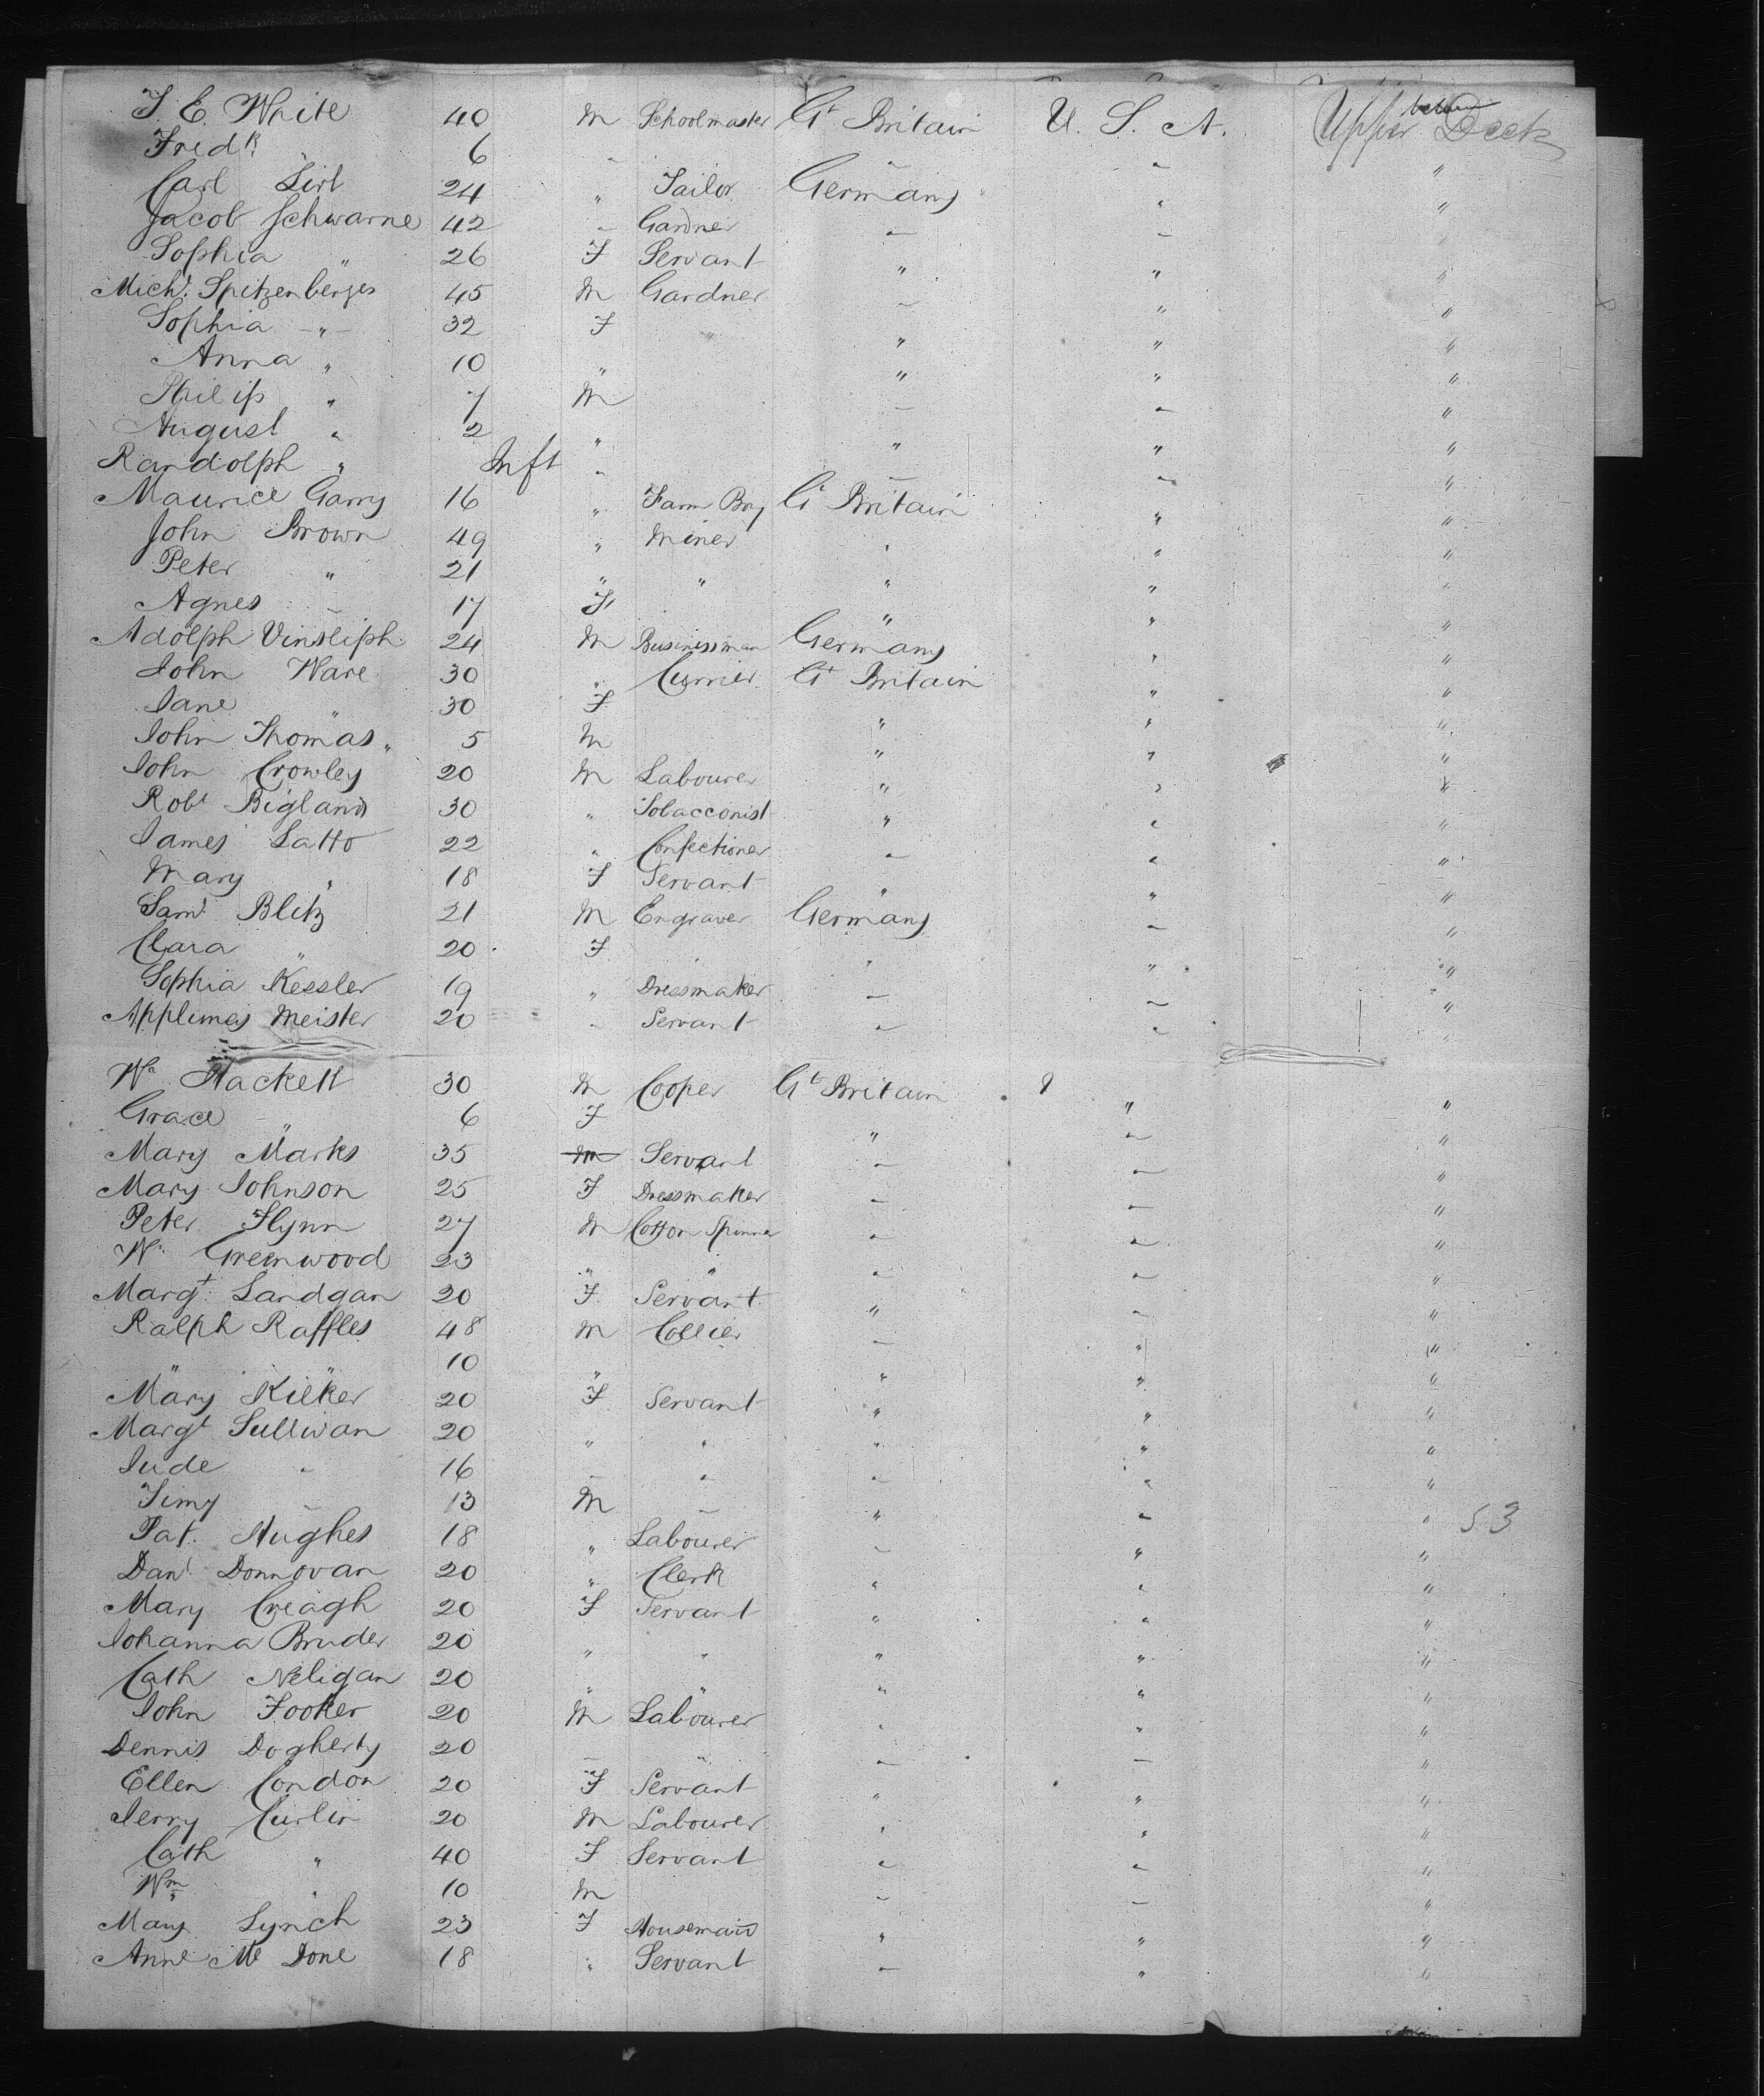 J. E. White 40 M Schoolmaster Gt Britain U. S. A. Upper between Deck
Fredk. 6 " " " "
Carl Lirt 24 " Tailor Germany " "
Jacob Schwarne 42 " Gardner " " "
Sophia " 26 F Servant " " "
Michl. Spitzenberges 45 M Gardner " " "
Sophia " 32 F " " " "
Anna " 10 " " " "
Philip " 7 M " " "
August " 2 " " " "
Randolph " Inft " " " "
Maurice Garry 16 " Farm Boy Gt Britain " "
John Brown 49 " Miner " " "
Peter " 21 " " " " "
Agnes " 17 F " " "
Adolph Vinsliph 24 M Businessman Germany " "
John Ware 30 " Currier Gt Britain " "
Jane " 30 F " " "
John Thomas " 5 M " " "
John Crowley 20 M Labourer " " "
Robt Bigland 30 " Tobacconist " " "
James Latto 22 " Confectioner " " "
Mary " 18 F Servant " " "
Saml Blitz 21 M Engraver Germany " "
Clara " 20 F " " "
Sophia Kessler 19 " Dressmaker " " "
Meister 20 " Servant " " "
Wm Hackett 30 M Cooper Gt Britain " "
Grace " 6 F " " "
Mary Marks 35 M Servant " " "
Mary Johnson 25 F Dressmaker " " "
Peter Flynn 27 M Cotton Spinner " " "
Wm Greenwood 23 " " " " "
Margt. Landgan 20 F Servant " " "
Ralph Raffles 48 M Collier " " "
" " 10 " " " "
Mary Kilker 20 F Servant " " "
Margt Sullivan 20 " " " " "
Jude " 16 " " " " "
Timy " 13 M " " " "
Pat. Hughes 18 " Labourer " " " 53
Danl Donnovan 20 " Clerk " " "
Mary Creagh 20 F Servant " " "
Johanna Bruder 20 " " " " "
Cath Neligan 20 " " " " "
John Fooker 20 M Labourer " " "
Dennis Dogherty 20 " " " " "
Ellen Condon 20 F Servant " " "
Jerry Curlin 20 M Labourer " " "
Cath " 40 F Servant " " "
Wm " 10 M " " "
Mary Lynch 23 F Housemaid " " "
Anne Mc Done 18 " Servant " " "